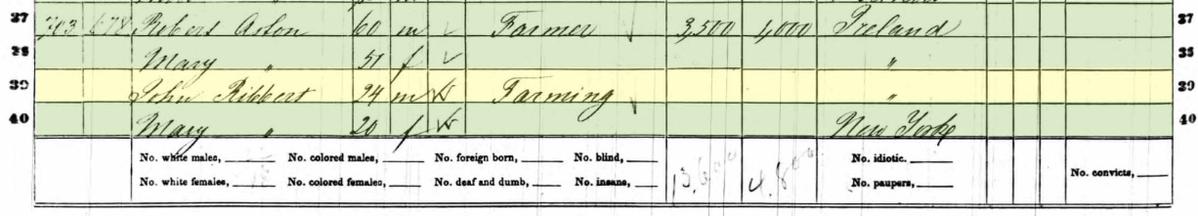 37 703 678 Robert Aston 60 m Farmer 3,500 4,000 Ireland 37
38 Mary " 51 f " 38
39 John Ribbert 24 m Farming " 39
40 Mary " 20 f New York 40
No. white males, No. colored males, No. foreign born, No. blind, No. idiotic. No. convicts,
No. white females, No. colored females, No. deaf and dumb, No. insane, No. paupers,